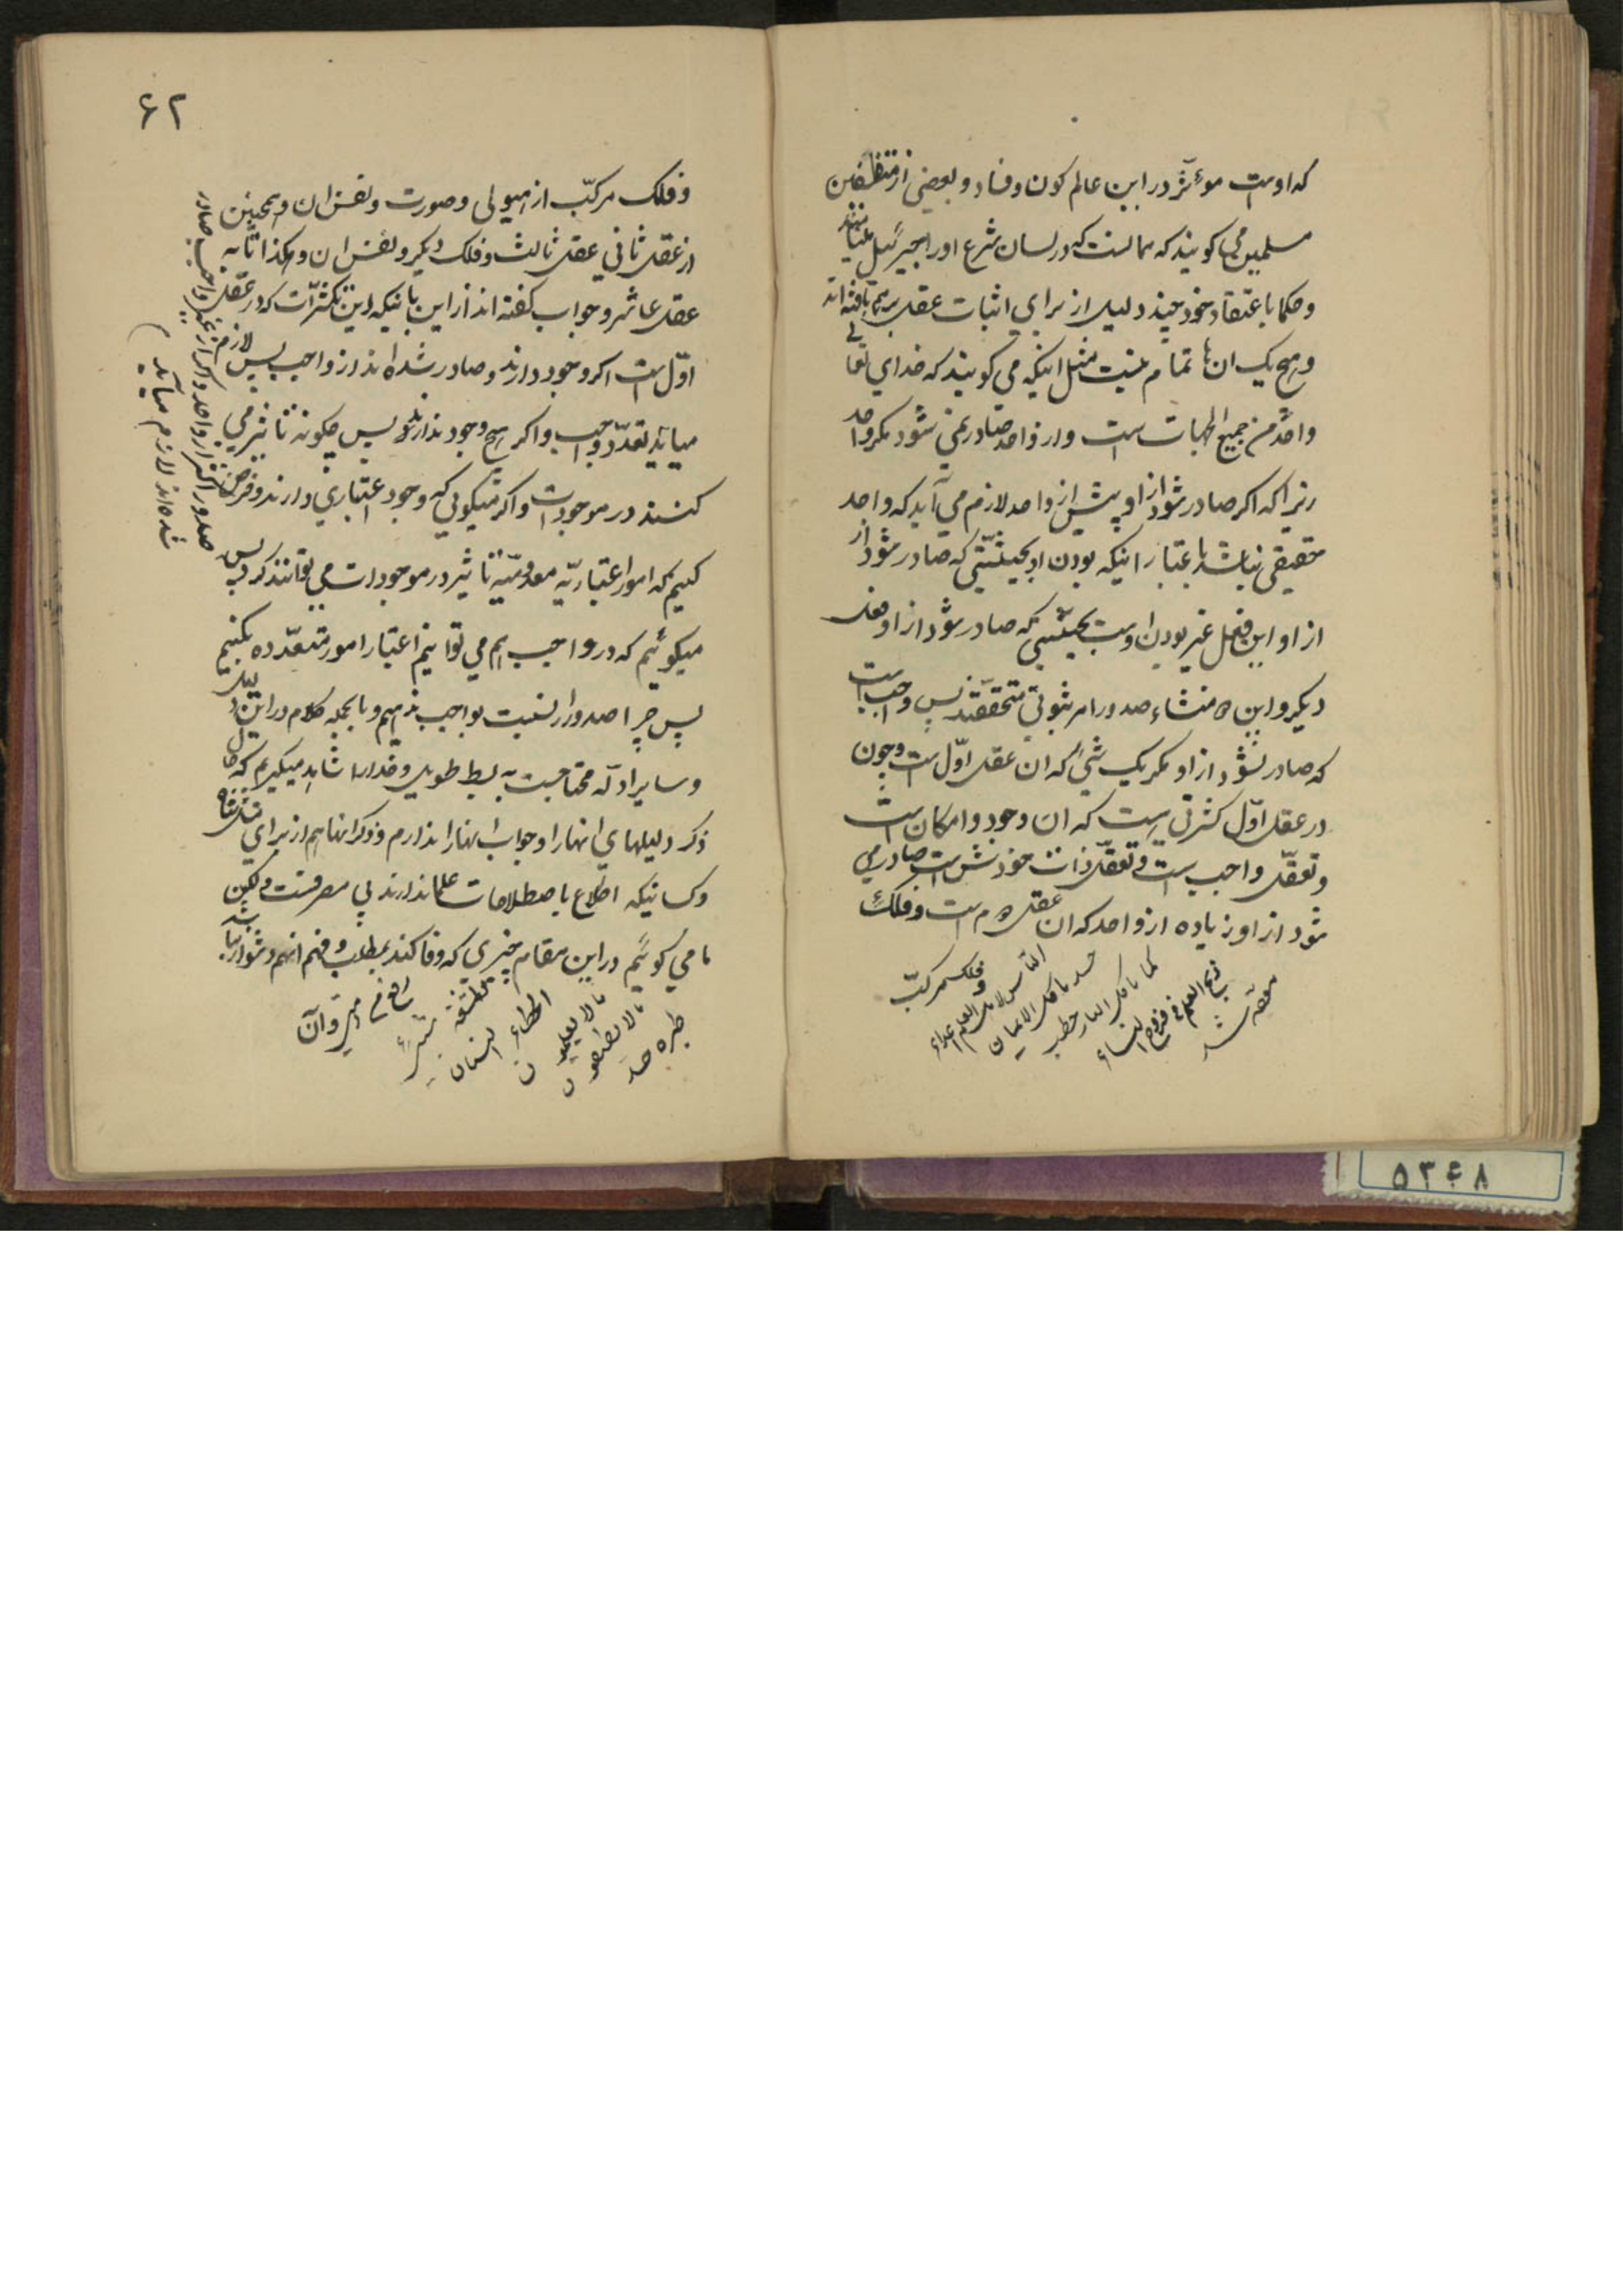 که اوست موءثر در این عالم کون و فساد و بعضی از متفلسفین
مسلمین می کویند که همانست که در لسان شرع او را جبرئیل
و حکما باعتقاد خود چند دلیل از برای اثبات عقل بر هم بافته اند
و هیچ یک ان ها تمام نیست مثل اینکه می کویند که خدای تعالی
واحد من جمیع الجهات است و از واحد صادر نمی شود مکر واحد
زیرا که اکر صادر شود از او بیش از واحد لازم می آید که واحد
حقیقی نباشد باعتبار اینکه بودن او بحیثیتی که صادر شود از
از او این فعل غیر بودن اوست بحیثیتی که صادر شود از او فعل
دیکر و این منشاء صدور امر ثبوتی متحققند پس واجب است
که صادر نشود از او مکر یک شیٔ که ان عقل اوّل است و چون
در عقل اوّل کثرتی است که ان وجود و امکان است
و تعقّل واجب است و تعقّل ذات خودش است صادر می
شود از او زیاده از واحد که ان عقل دوم است و فلک
و فلک مرکبّ
۶۲
و فلک مرکبّ از هیولی و صورت و نفس ان و همچنین
از عقل ثانی عقل ثالث و فلک دیکر و نفس ان و هکذا تا به
عقل عاشر و جواب کفته اند از این باینکه این تکثرّات که در عقل
اوّل است اکر وجود دارند و صادر شده اند از واجب پس لازم
میاید تعدّد واجب و اکر هیچ وجود ندارند پس چکونه تاثیر می
کنند در موجودات و اکر میکوئی که وجود اعتباری دارند و فرض
کنیم که امور اعتباریّه معدومیّه تاثیر در موجودات می توانند کرد پس
میکوئیم که در واجب هم می توانیم اعتبار امور متعدّده بکنیم
پس چرا صدور را نسبت بواجب ندهیم و بالجمله کلام در این دلیل
و سایر ادلّه محتاجست به بسط طویل و خدا را شاهد میکیریم که حال
ذکر دلیلهای انها را و جواب انها را ندارم و ذکر انها هم از برای
و کسانیکه اطّلاع باصطلاحات علما ندارند بی مصرفست و لکن
ما می کوئیم در این مقام چیزی که وفا کند بمطلب و فهم انهم دشوار نباشد
صدور اکثر از واحد و اکر از غیر واجب صادر
شده اند لازم میآید
۵۳۶۸